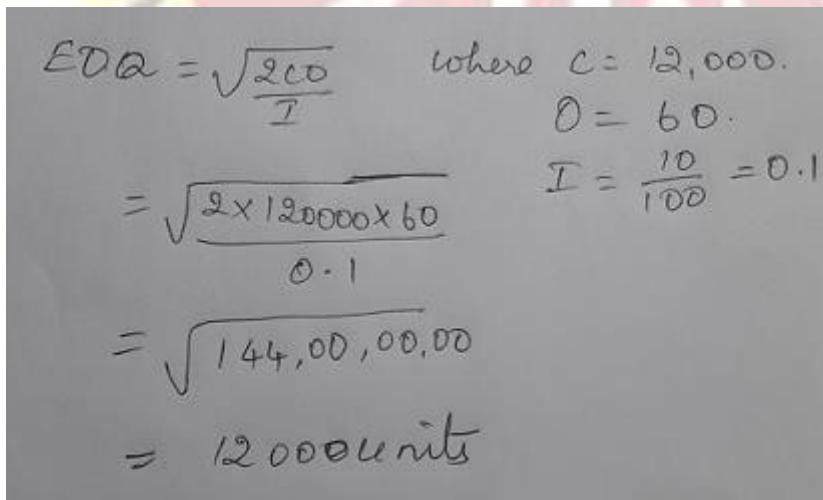 EOQ = √2CO/I where C = 12,000.
O = 60.
I = 10/100 = 0.1
= √2×120000×60/0.1
= √144,00,00,00
= 12000 units